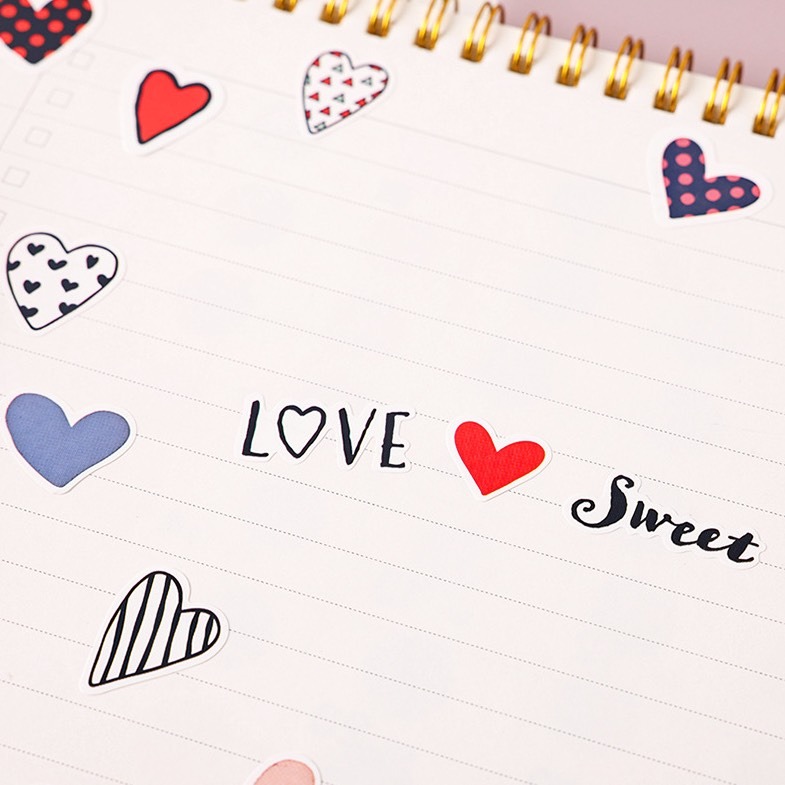 LOVE
Sweet